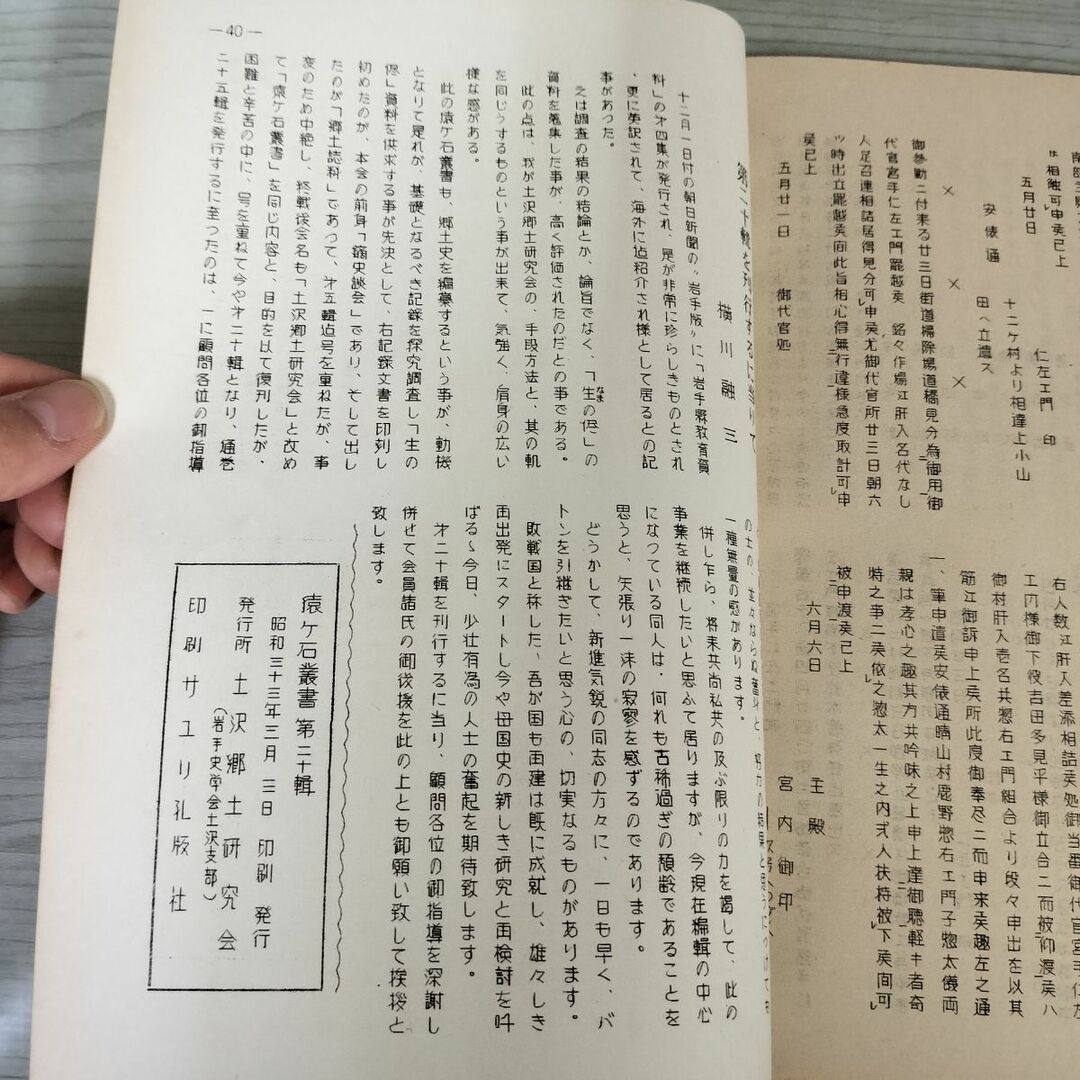 南部
相触可申候已上
五月廿日
仁左エ門　印
十二ケ村より相達上小山
安俵通　田へ立遣ス
×　×　×
御参勤ニ付来る廿三日街道掃除場道橋見分為御用御
代官宮手仁左エ門罷越候　銘々作場江肝入名代なし
人足召連相詰居得見分可申候尤御代官所廿三日朝六
ッ時出立罷越候間此旨相心得無行違様急度取計可申
候已上
五月廿一日　御代官処
右人数江肝入差添相詰候処御当番御代官宮手仁左
エ門様御下役吉田多見平様御立合ニ而被仰渡候ハ
御村肝入壱名共惣右エ門組合より段々申出を以其
筋江御訴申上候所此度御奉尽ニ而申来候趣左之通
一、筆申遣候安俵通晴山村鹿野惣右エ門子惣太儀両
親は孝心之趣其方共吟味之上申上達御聴軽キ者奇
特之事ニ候依之惣太一生之内弐人扶持被下候間可
被申渡候已上
六月六日
主殿
宮内御印
―40―
第二十輯を刊行するに当りて
横川融三
十二月一日付の朝日新聞の〝岩手版〟に「岩手縣教育資
料」の才四集が発行され、是が非常に珍らしきものとされ
、更に英訳されて、海外に迠紹介され様として居るとの記
事があった。
之は調査の結果の結論とか、論旨でなく、「生の侭」の
なま
資料を蒐集した事が、高く評価されたのだとの事である。
此の点は、我が土沢郷士研究会の、手段方法と、其の軌
を同じうするものという事が出来て、気強く、肩身の広い
様な感がある。
此の猿ケ石叢書も、郷土史を編纂するという事が、動機
となりて是れが、基礎となるべき記録を探究調査し「生の
侭」資料を供求する事が先決として、右記録文書を印刻し
初めたのが、本会の前身「鏑史談会」であり、そして出し
たのが「郷土誌料」であつて、才五輯迠号を重ねたが、事
変のため中絶し、終戦後会名も「土沢郷土研究会」と改め
て「猿ケ石叢書」を同じ内容と、目的を以て復刊したが、
困難と辛苦の中に、号を重ねて今や才二十輯となり、通巻
二十五輯を発行するに至ったのは、一に顧問各位の御指導
の士の、並々ならぬ奮斗と
一種無量の感があります。
併し乍ら、将来共尚私共の及ぶ限りの力を竭して、此の
事業を継続したいと思ふて居りますが、今現在編輯の中心
になつている同人は、何れも古稀過ぎの頽齢であることを
思うと、矢張り一沫の寂寥を感ずるのであります。
どうかして、新進気鋭の同志の方々に、一日も早く、バ
トンを引継ぎたいと思う心の、切実なるものがあります。
敗戦国と秤した、吾が国も再建は既に成就し、雄々しき
再出発にスタートし今や母国史の新しき研究と再検討を叫
ばる〻今日、少壮有為の人士の奮起を期待致します。
才二十輯を刊行するに当り、顧問各位の御指導を深謝し
併せて会員諸氏の御後援を此の上とも御願い致して挨拶と
致します。
猿ケ石叢書　第二十輯
昭和三十三年三月　三日　印刷　発行
発行所　土沢郷土研究会
（岩手史学会土沢支部）
印刷　サユリ孔版社